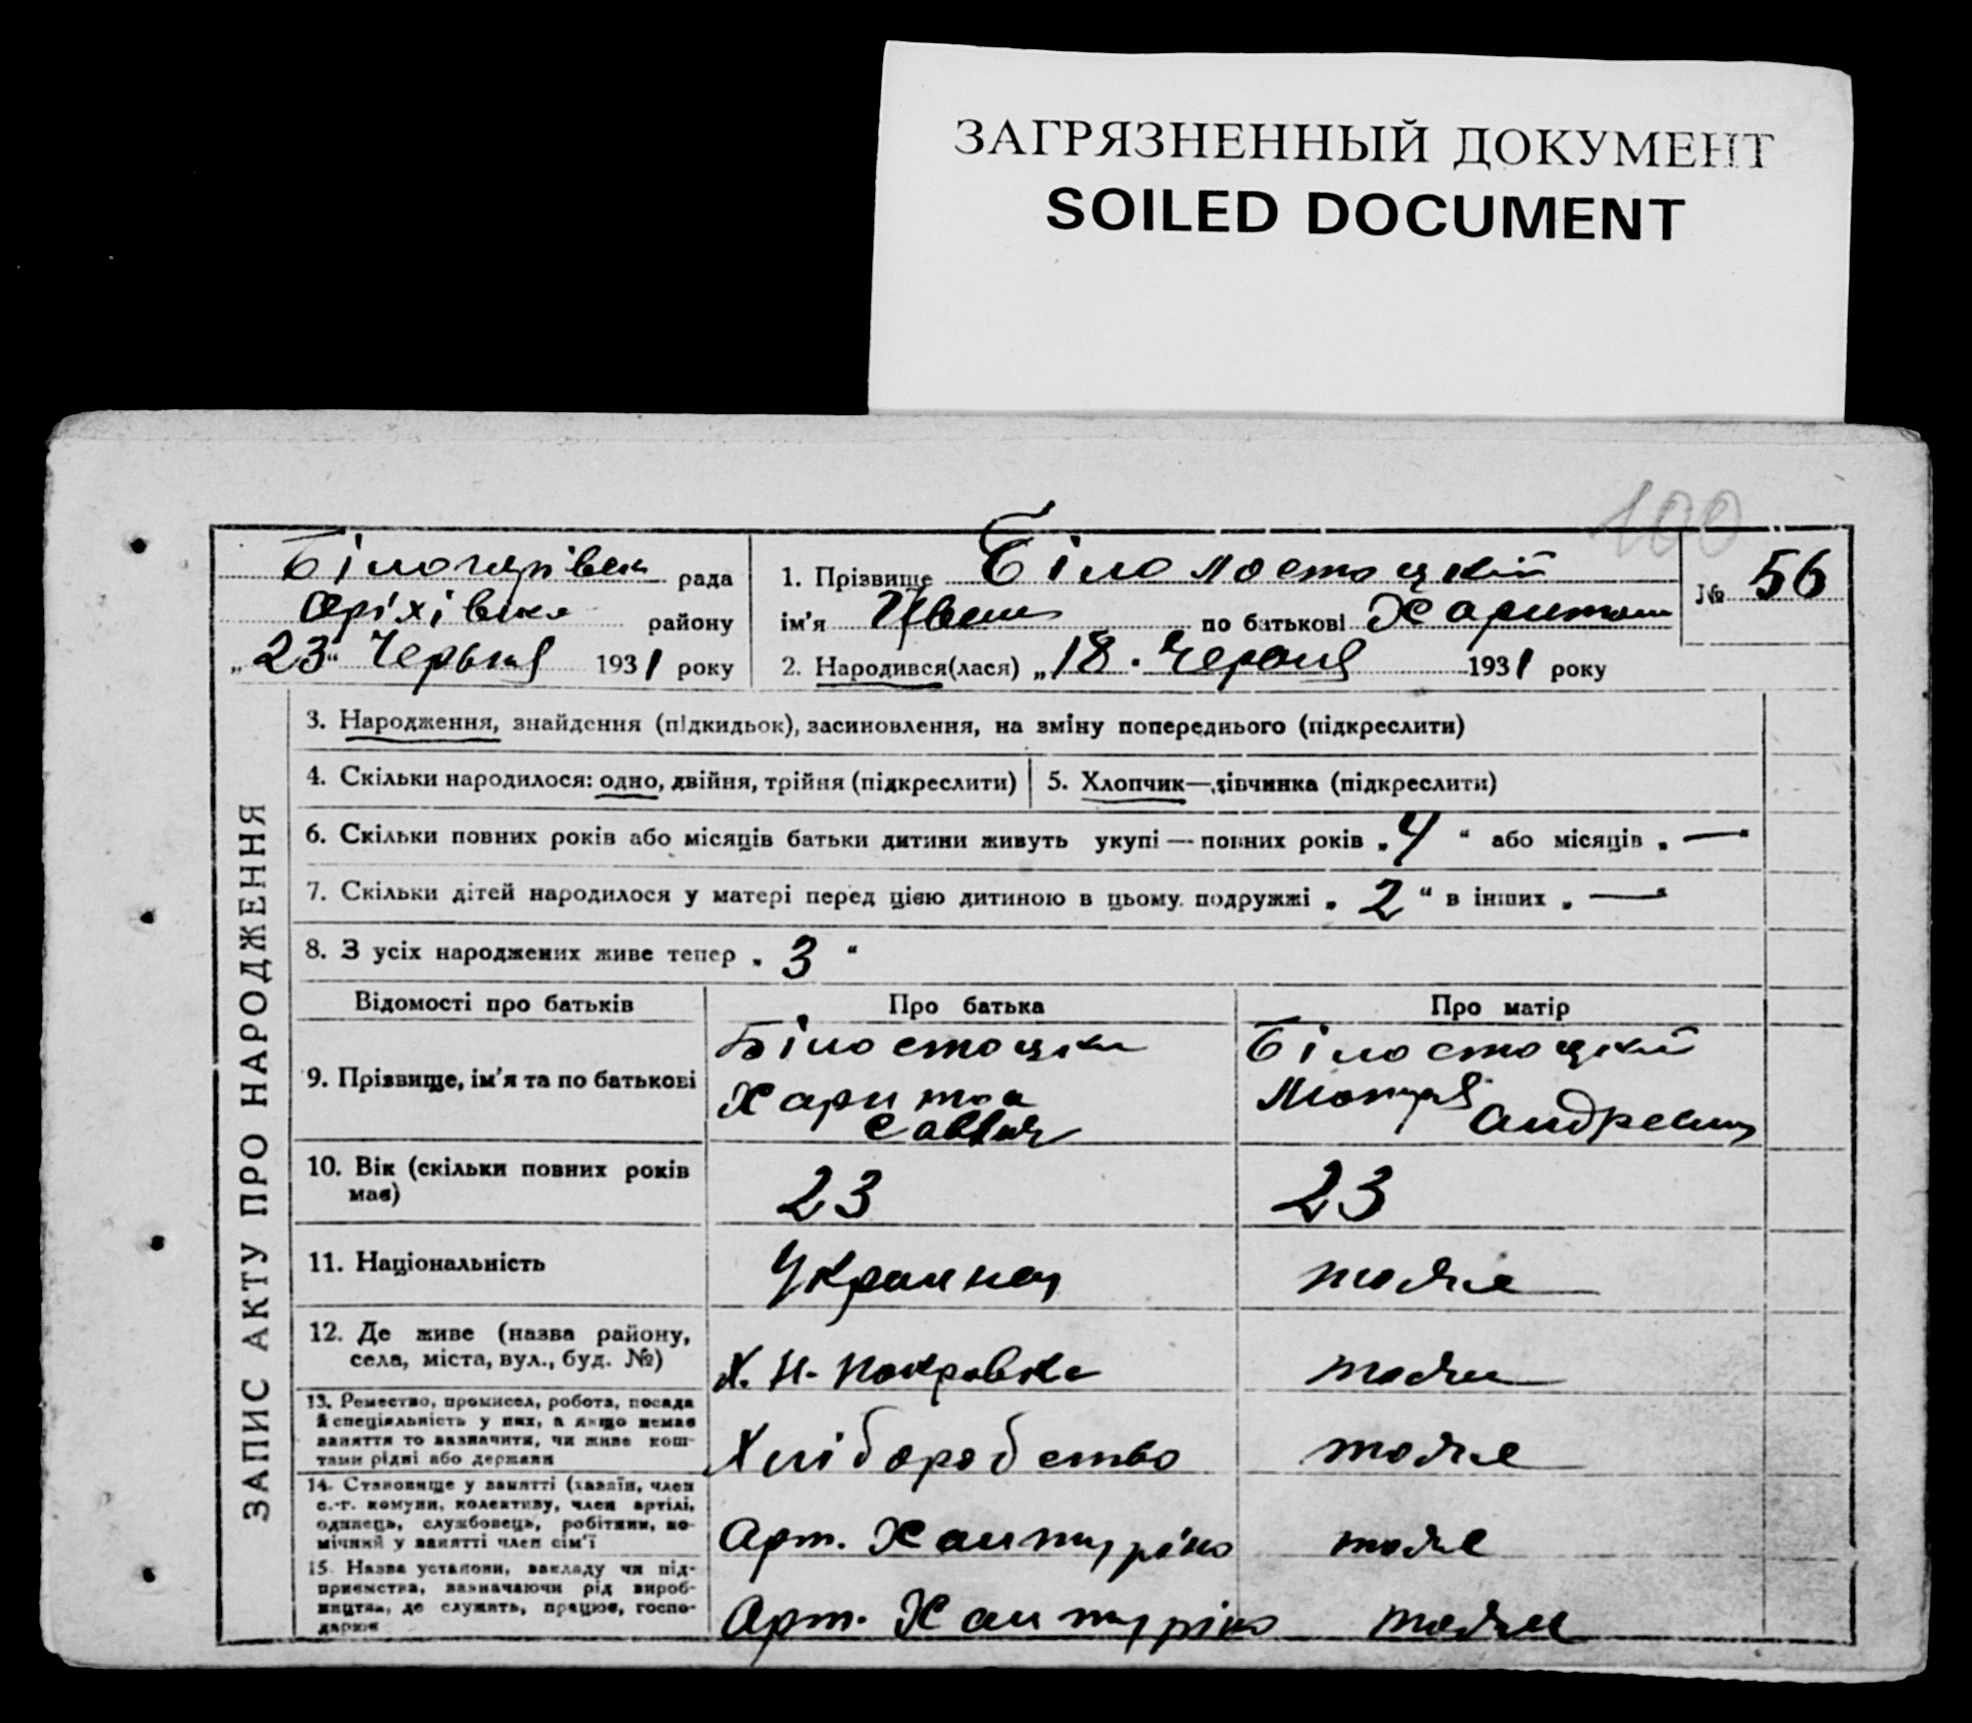 ЗАГРЯЗНЕННЫЙ ДОКУМЕНТ
SOILED DOCUMENT
100
рада
1. Прізвище
№ 56
Оріхівсько району
ім'я Иван по батькові Харитон
„23“ Червня 1931 року
2. Народився(лася) „18. Червня 1931 року
ЗАПИС АКТУ ПРО НАРОДЖЕННЯ
3. Народження, знайдення (підкидьок), засиновлення, на зміну попереднього (підкреслити)
4. Скільки народилося: одно, двійня, трійня (підкреслити)
5. Хлопчик—дівчинка (підкреслити)
6. Скільки повних років або місяців батьки дитини живуть укупі — повних років „4“ або місяців „—“
7. Скільки дітей народилося у матері перед цією дитиною в цьому подружжі „2“ в інших „—“
8. З усіх народжених живе тепер „3“
Відомості про батьків
Про батька
Про матір
9. Прізвище, ім'я та по батькові
Білостоцки
Харитон
Савич
Білостоцкий
Мотря
Андреевн
10. Вік (скільки повних років
має)
23
23
11. Національність
тоже
12. Де живе (назва району,
села, міста, вул., буд. №)
Х. Н. Покровка
тоже
13. Ремество, промисел, робота, посада
й спеціяльність у них, а якщо немає
заняття то зазначити, чи живе кош-
тами рідні або держави
Хліборобство
тоже
14. Становище у занятті (хазяїн, член
с.-г. комуни, колективу, член артілі,
одинець, службовець, робітник, по-
мічний у занятті член сім'ї
Арт.
тоже
15. Назва установи, закладу чи під-
приємства, зазначаючи рід вироб-
ництва, де служить, працює, госпо-
дарює
Арт.
тоже